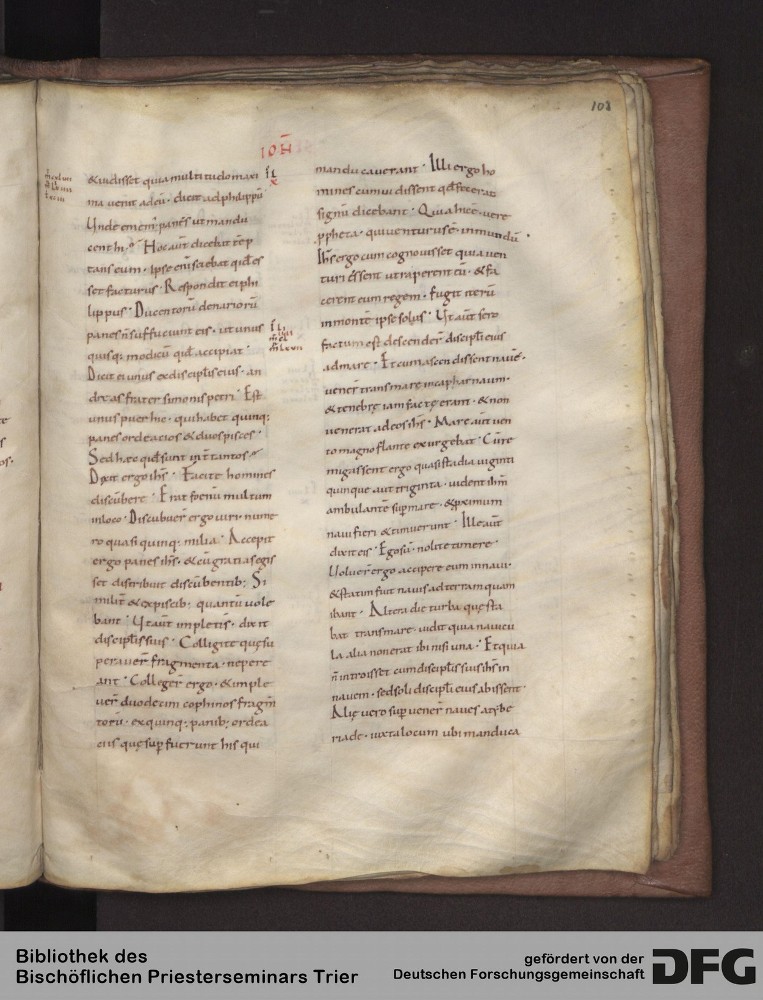 103
IOH
&uidisset quia multitudo maxi
ma uenit adeū · dicit adphilippū
Unde emem᷒ panes ut mandu
cent hi · Hoc aūt dicebat tēp
tans eum · ipse eni sciebat quid es
set facturus · Respondit ei phi
lippus · Ducentorū denariorū
panes ñ sufficiunt eis · ut unus
quisq; modicū quid accipiat ·
Dicit ei unus ex disciplis eius · an
dreas frater simonis petri · Est
unus puer hic · qui habet quinq;
panes ordeacios & duos pisces ·
Sed haec quid sunt int tantos
Dixit ergo ihs · Facite homines
discūbere · Erat foenū multum
in loco · Discubuer ergo uiri · nume
ro quasi quinq; milia · Accepit
ergo panes ihs · & cū gratias egis
set distribuit discūbentib; Si
milit & ex piscib; quantū uole
bant · Ut aūt impleti s · dixit
disciplis suis · Colligite quę su
perauer fragmenta · ne pere
ant · Colleger ergo · & imple
uer duodecim cophinos fragm
torū · ex quinq; panib; ordea
ciis quę sup fuerunt his qui
mandu cauerant · Illi ergo ho
mines cum uidissent qd fecerat
signū dicebant · Quia hic ē uere
ppheta · qui uenturus ē in mundū ·
Ihs ergo cum cognouisset quia uen
turi essent ut raperent eū · & fa
cerent eum regem · Fugit iterū
in monte ipse solus · Ut aūt sero
factum est descender discipli eius
ad mare · Et cum ascendissent nauē ·
uener trans mare in capharnaum ·
& tenebrę iam factę erant · & non
uenerat ad eos ihs · Mare aūt uen
to magno flante exurgebat · Cū re
migassent ergo quasi stadia uiginti
quinque aut triginta · uident ihm
ambulante sup mare · & pximum
naui fieri & timuerunt · Ille aūt
dixit eis · Ego sū · nolite timere ·
Voluer ergo accipere eum in naui ·
& statim fuit nauis ad terram quam
ibant · Altera die turba quę sta
bat trans mare · uidit quia nauicu
la alia non erat ibi nisi una · Et quia
ñ introisset cum disciplis suis ihs in
nauem · sed soli discipli eius abissent ·
Alię uero sup uener naues a tybe
riade · iuxta locum ubi manduca
Bibliothek des
Bischöflichen Priesterseminars Trier
gefördert von der
Deutschen Forschungsgemeinschaft
DFG